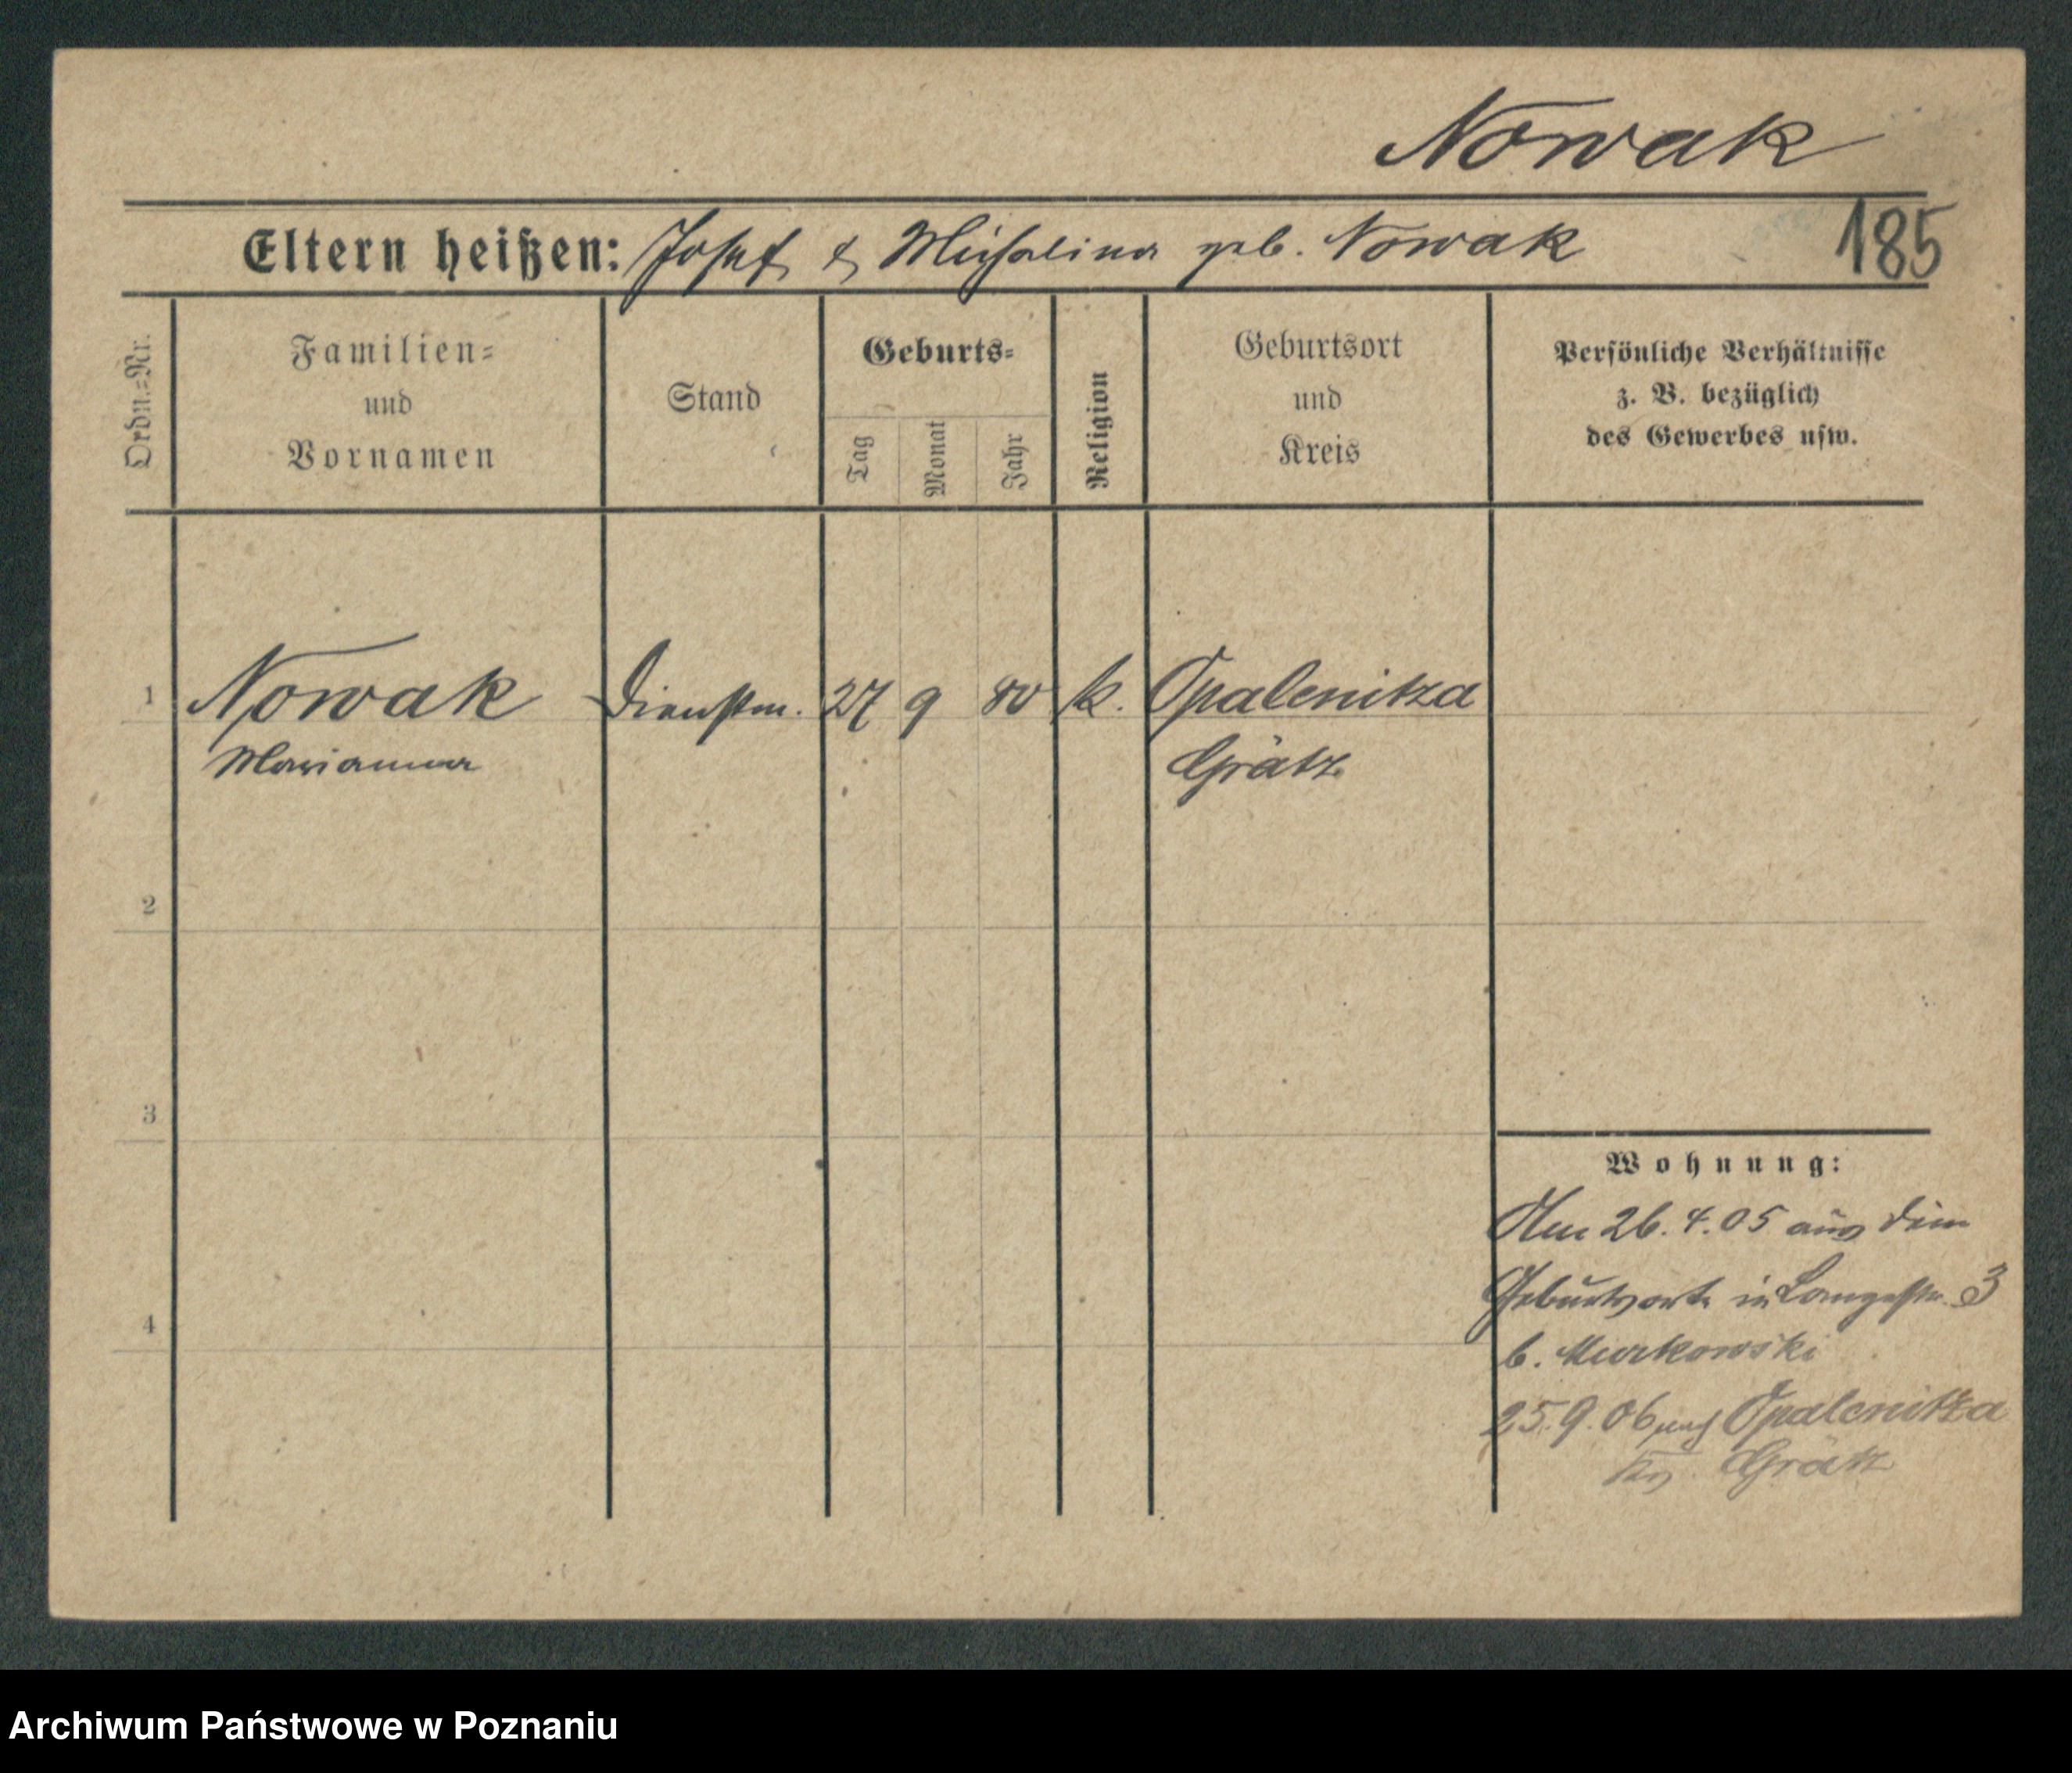 Nowak
185
Eltern heißen: Josef & Michalina geb. Nowak
Ordn.=Nr.
Familien=
und
Vornamen
Stand
Geburts=
Tag
Monat
Jahr
Religion
Geburtsort
und
Kreis
Persönliche Verhältnisse
z. B. bezüglich
des Gewerbes usw.
1 Nowak Dienstm. 27 9 80 k. Opalenitza
Marianna Grätz
2
3
4
Wohnung:
Am 26.4.05 aus dem
Geburtsorte in Langestr. 3
b. Murkowski
25.9.06 nach Opalenitza
Krs. Grätz
Archiwum Państwowe w Poznaniu